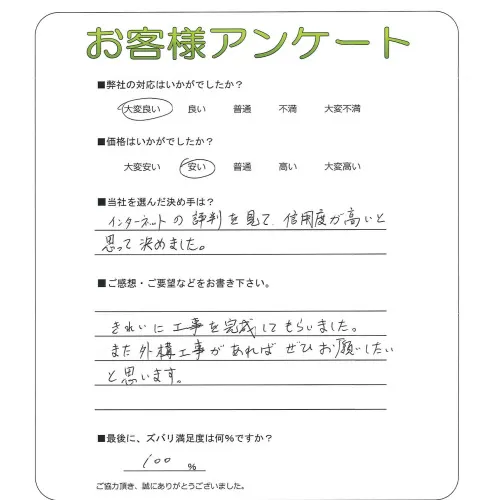 お客様アンケート
■弊社の対応はいかがでしたか？
大変良い 良い 普通 不満 大変不満
■価格はいかがでしたか？
大変安い 安い 普通 高い 大変高い
■当社を選んだ決め手は？
インターネットの評判を見て、信用度が高いと
思って決めました。
■ご感想・ご要望などをお書き下さい。
きれいに工事を完成してもらいました。
また外構工事があればぜひお願いしたい
と思います。
■最後に、ズバリ満足度は何％ですか？
100 %
ご協力頂き、誠にありがとうございました。